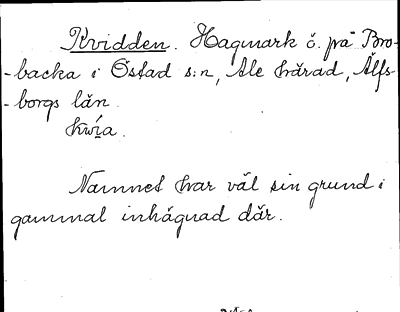 Kvidden. Hagmark ö. på Bro-
-backa i Östad s:n, Ale härad, Älfs-
-borgs län.
Kwía.
Namnet har väl sin grund i
gammal inhägnad där.